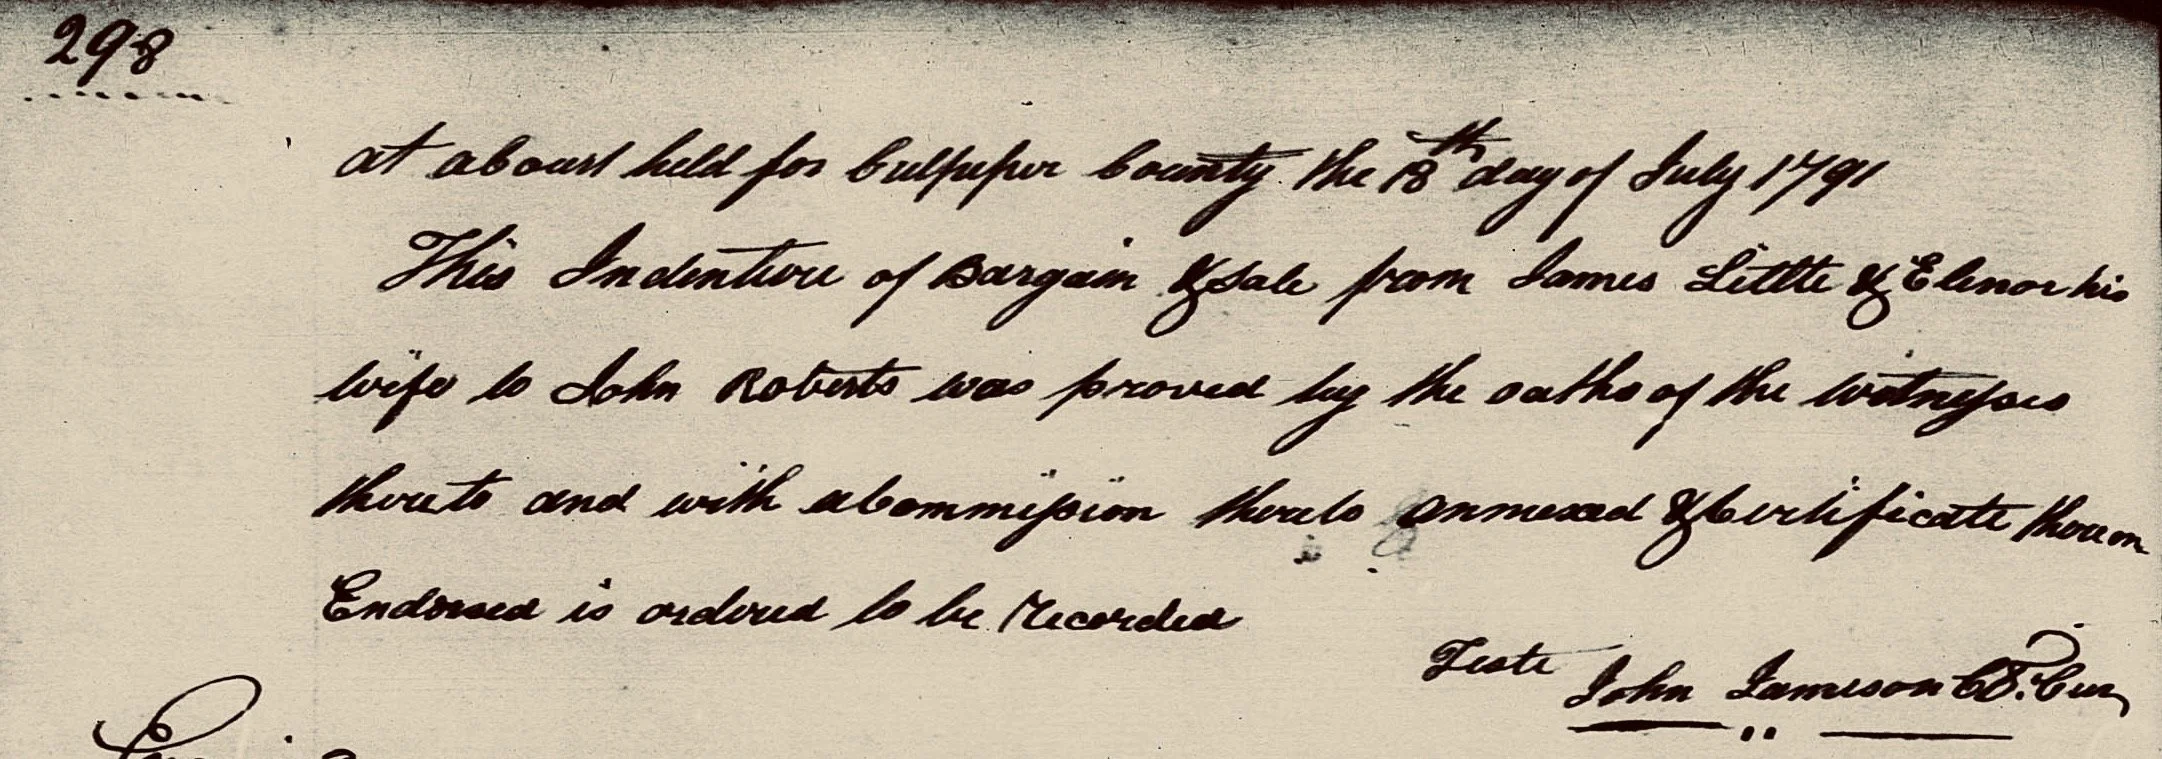 298
at a Court held for Culpeper County the 18th day of July 1791
This Indenture of Bargain & Sale from James Little & Elenor his
wife to John Roberts was proved by the oaths of the witnesses
thereto and with a Commission thereto annexed & Certificate thereon
Endorsed is ordered to be Recorded
Teste John Jameson Cl. Cur